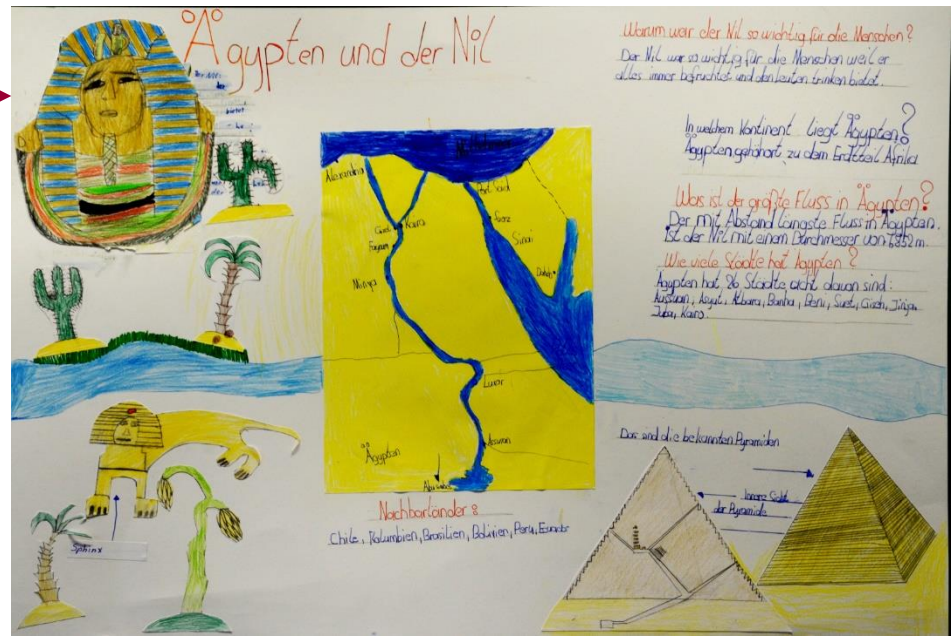 Ägypten und der Nil
bietet
Warum war der Nil so wichtig für die Menschen?
Der Nil war so wichtig für die Menschen weil er
alles immer befruchtet und den leuten trinken bietet.
In welchem Kontinent liegt Ägypten?
Ägypten gehöhort zu dem Erdteil Afrika
Was ist der größte Fluss in Ägypten?
Der mit Abstand längste Fluss in Ägyptan.
ist der Nil mit einem Durchmesser von 6852 m
Wie viele Städte hat Ägypten?
Ägypten hat 26 Städte, acht davon sind:
Asyut, Atbara, Banha, Beni, Suef, Giseh, Jinja,
Juba, Kairo.
Alexandria
Port Said
Kairo
Suez
Sinai
Dahab
Minya
Luxor
Assuan
Ägypten
Nachbarländer:
Chile, Kolumbien, Brasilien, Bolivien, Peru, Ecuador
Sphinx
Das sind die bekannten Pyramiden
Innere
der Pyramide